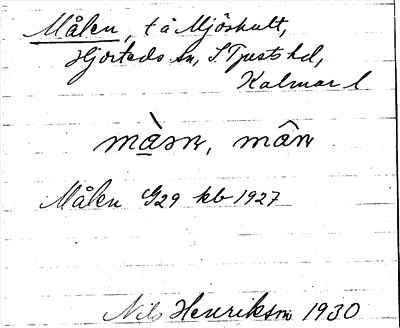 Målen, t å Mjöshult,
Hjorteds sn, S. Tjusts hd,
Kalmar l
mån
Målen G29 kb 1927
Nils Henrikson 1930